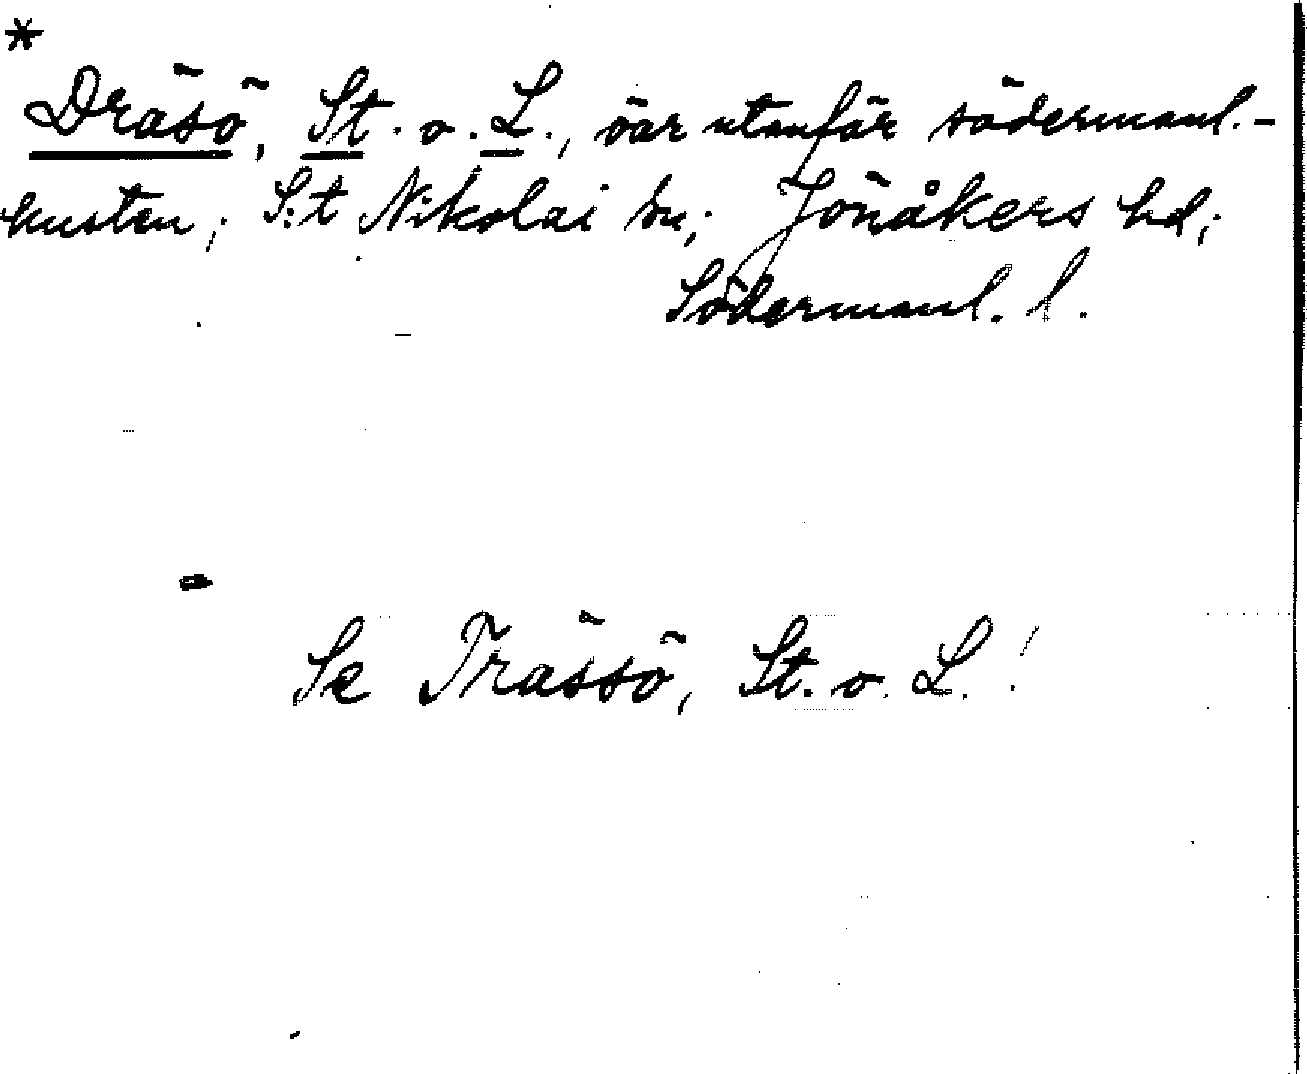 *
Dräsö, St. o. L., öar utanför södermanl.-
kusten; S:t Nikolai sn; Jönåkers hd;
Södermanl. l.
Se Trässö, St. o. L.!